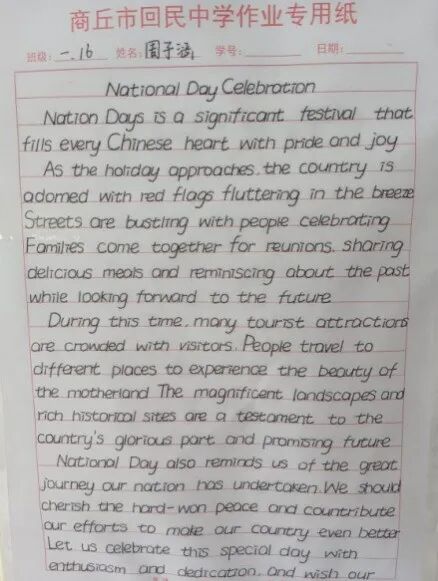 商丘市回民中学作业专用纸
班级: 一.16 姓名: 周子涵 学号: 日期:
National Day Celebration
Nation Days is a significant festival that
fills every Chinese heart with pride and joy
As the holiday approaches, the country is
adorned with red flags fluttering in the breeze
Streets are bustling with people celebrating
Families come together for reunions, sharing
delicious meals and reminiscing about the past
while looking forward to the future
During this time, many tourist attractions
are crowded with visitors. People travel to
different places to experience the beauty of
the motherland The magnificent landscapes and
rich historical sites are a testament to the
country's glorious part and promising future
National Day also reminds us of the great
journey our nation has undertaken. We should
cherish the hard-won peace and countribute
our efforts to make our country even better
Let us celebrate this special day with
enthusiasm and dedication, and wish our